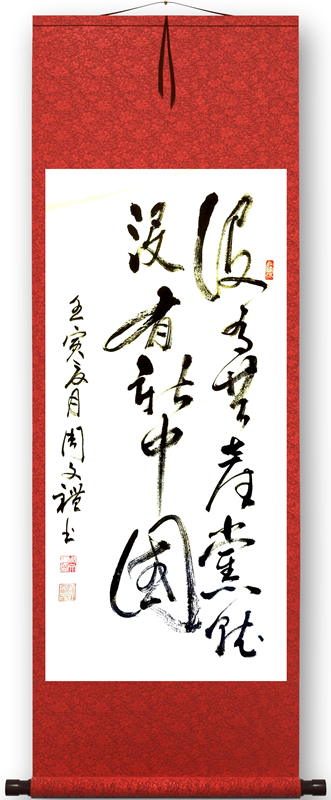 没有共产党就
没有新中国
壬寅辰月周文礼书